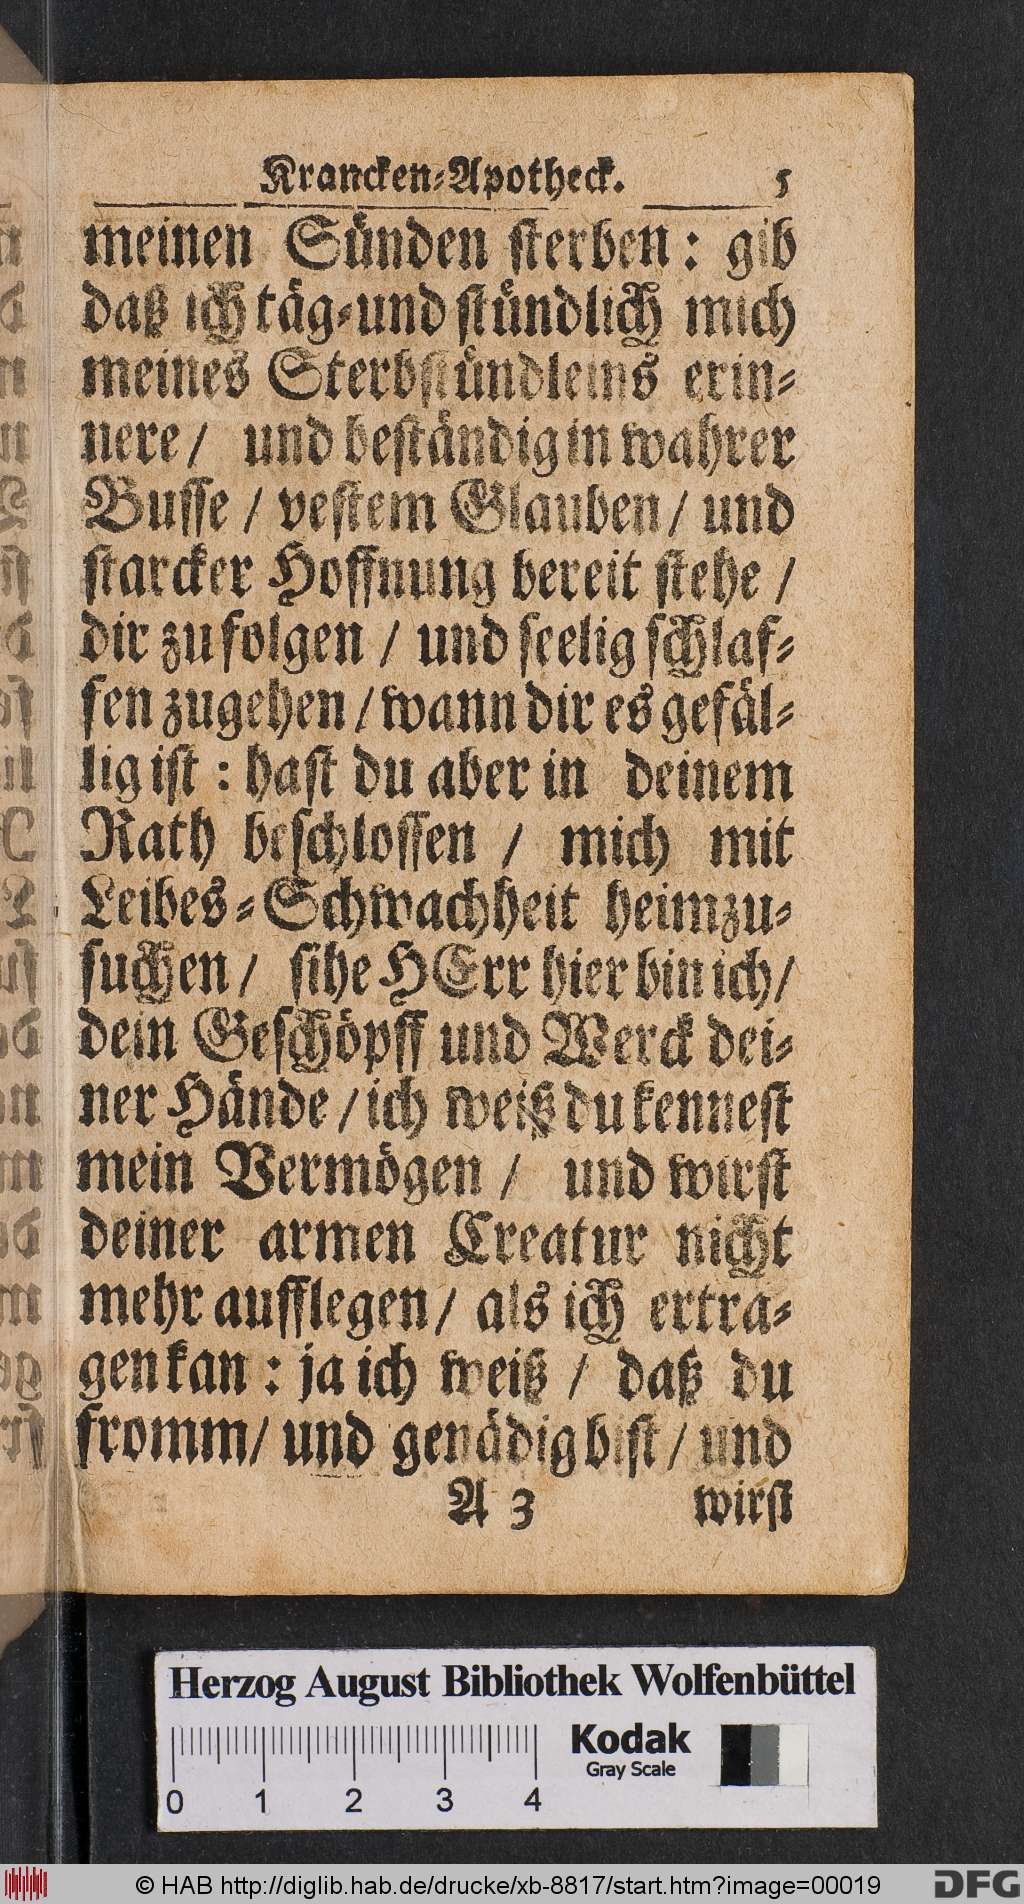 Krancken-Apotheck. 5
meinen Sünden sterben: gib
daß ich täg-und stündlich mich
meines Sterbstündleins erin-
nere/ und beständig in wahrer
Busse / vestem Glauben/ und
starcker Hoffnung bereit stehe /
dir zu folgen / und seelig schlaf-
fen zugehen / wann dir es gefäl-
lig ist : hast du aber in deinem
Rath beschlossen / mich mit
Leibes-Schwachheit heimzu-
suchen/ sihe HErr hier bin ich/
dein Geschöpff und Werck dei-
ner Hände / ich weiß du kennest
mein Vermögen / und wirst
deiner armen Creatur nicht
mehr aufflegen/ als ich ertra-
gen kan : ja ich weiß / daß du
fromm/ und genädig bist / und
A 3 wirst
Herzog August Bibliothek Wolfenbüttel
Kodak
Gray Scale
0 1 2 3 4
© HAB http://diglib.hab.de/drucke/xb-8817/start.htm?image=00019
DFG